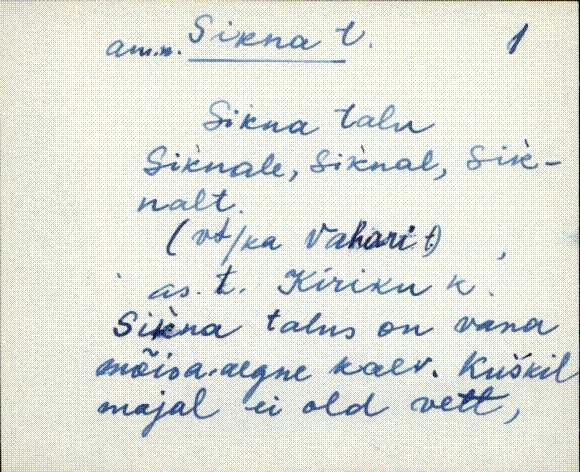 am.n. Sikna t. 1
Sikna talu
Sik̀nale, Sik̀nal, Sik̀-
nalt.
(vt/ka Vahari t)
as. t. Kiriku k.
Sik̀na talus on vana
mõisa-aegne kaev. Kuskil
majal ei old vett,